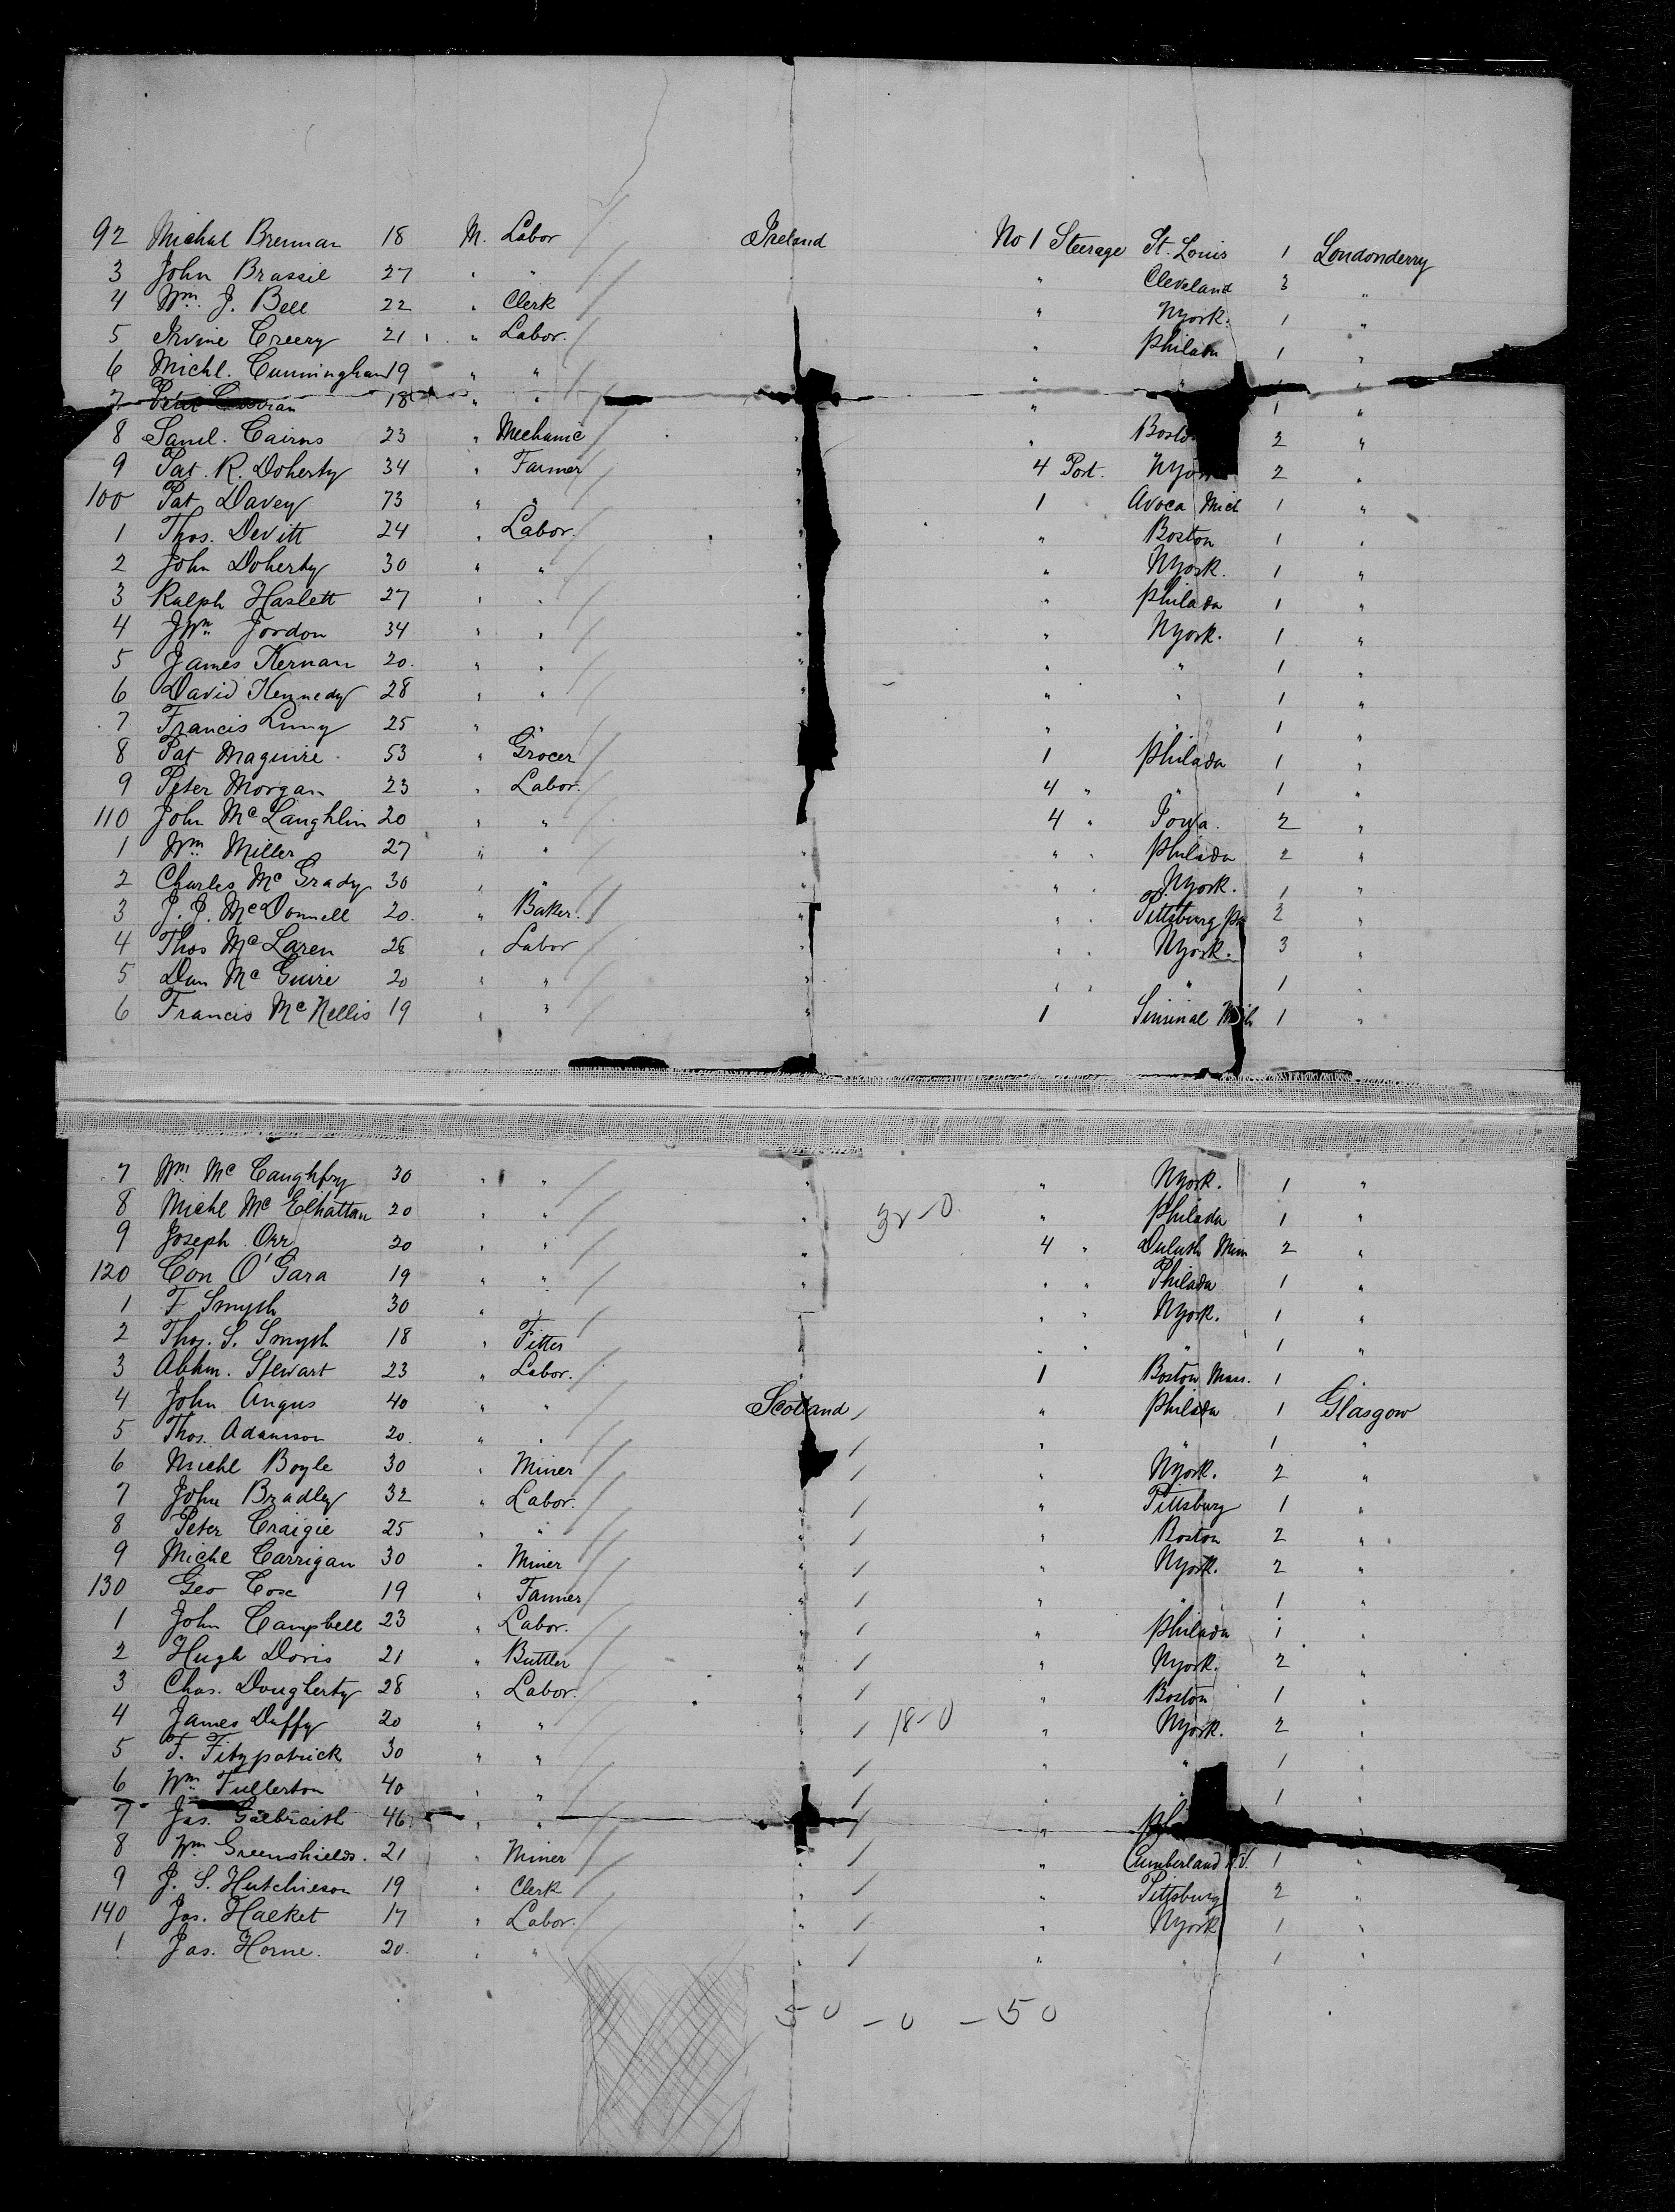 92 Michal Brennan 18 M. Labor Ireland No 1 Steerage St. Louis 1 Londonderry
3 John Brassil 27 " " " Cleveland 3 "
4 Wm. J. Bell 22 " Clerk " NYork. 1 "
5 Irvine Creery 21 " Labor. " Philada 1 "
6 Michl. Cunningham 19 " " " " 1 "
7 18 " " " 1 "
8 Saml. Cairns 23 " Mechanic " " Boston 2 "
9 Pat. R. Doherty 34 " Farmer " 4 Port. NYork 2 "
100 Pat Davey 73 " " 1 Avoca Mich 1 "
1 Thos. Devitt 24 " Labor. " " Boston 1 "
2 John Doherty 30 " " " " NYork. 1 "
3 Ralph Haslett 27 " " " " Philada 1 "
4 JWm Jordon 34 " " " " NYork. 1 "
5 James Kernan 20. " " " " " 1 "
6 David Kennedy 28 " " " " " 1 "
7 Francis Lunny 25 " " " " 1 "
8 Pat Maguire 53 " Grocer 1 Philada 1 "
9 Peter Morgan 23 " Labor. 4 " " 1 "
110 John McLaughlin 20 " " 4 " Iowa. 2 "
1 Wm. Miller 27 " " " " " Philada 2 "
2 Charles McGrady 30 " " " " " NYork. 1 "
3 J. J. McDonnell 20. " Baker. " " " Pittsburg Pa 2 "
4 Thos McLaren 28 " Labor " " " NYork. 3 "
5 Dan McGuire 20 " " " " " " 1 "
6 Francis McNellis 19 " " " 1 Mich 1 "
7 Wm McCaughfry 30 " " " " NYork. 1 "
8 Michl McElhattan 20 " " " 32-0 " Philada 1 "
9 Joseph Orr 20 " " " 4 " Duluth Minn 2 "
120 Con O'Gara 19 " " " " " Philada 1 "
1 F Smyth 30 " " " " " NYork. 1 "
2 Thos. S. Smyth 18 " Fitter " " " " 1 "
3 Abhm. Stewart 23 " Labor. " 1 Boston Mass. 1 "
4 John Angus 40 " " Scotland " Philada 1 Glasgow
5 Thos. Adamson 20. " " " " 1 "
6 Michl Boyle 30 " Miner " NYork. 2 "
7 John Bradley 32 " Labor. " " Pittsburg 1 "
8 Peter Craigie 25 " " " " Boston 2 "
9 Michl Carrigan 30 " Miner " " NYork. 2 "
130 Geo Cose 19 " Farmer " " " 1 "
1 John Campbell 23 " Labor. " " Philada 1 "
2 Hugh Doris 21 " Buttler " " NYork. 2 "
3 Chas. Dougherty 28 " Labor. " " Boston 1 "
4 James Duffy 20 " " " 18-0 " NYork. 2 "
5 F. Fitzpatrick 30 " " " " " 1 "
6 Wm Fullerton 40 " " " " " 1 "
7 Jas. Galbraith 46 " " " "
8 Wm Greenshields. 21 " Miner " " Cumberland 1 "
9 J. S. Hutchieson 19 " Clerk " " Pittsburg 2 "
140 Jas. Hacket 17 " Labor. " " NYork 1 "
1 Jas. Horne. 20. " " " " " 1 "
50 - 0 - 50